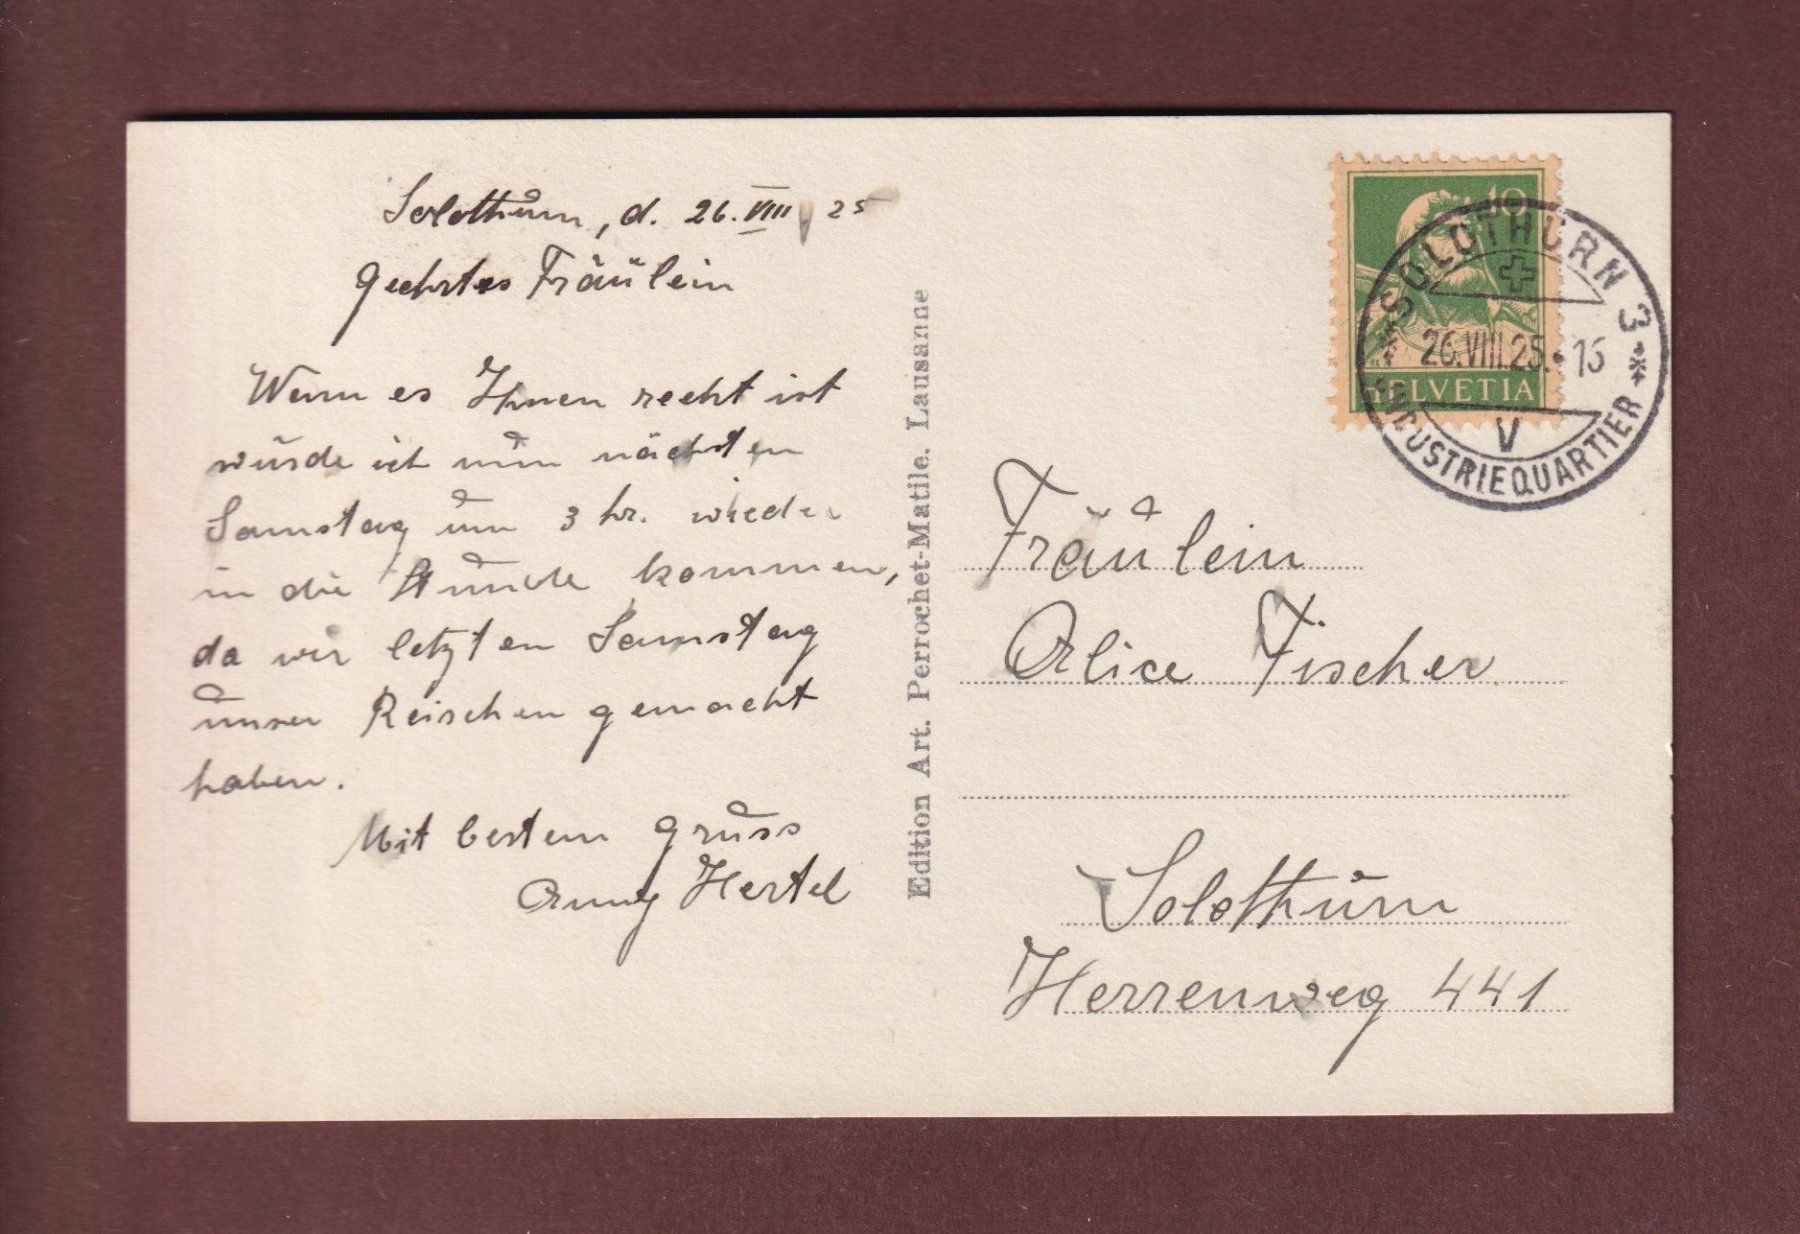 Solothurn, d. 26. VIII 25
Geehrtes Fräulein
Wenn es Ihnen recht ist
würde ich nun nächsten
Samstag um 3 hr. wieder
in die Stunde kommen,
da wir letzten Samstag
unser Reischen gemacht
haben.
Mit bestem Gruss
Hertel
Edition Art. Perrochet-Matile. Lausanne
10
HELVETIA
SOLOTHURN 3
26.VIII.25.-15
V
INDUSTRIEQUARTIER
Fräulein
Alice Fischer
Solothurn
Herrenweg 441